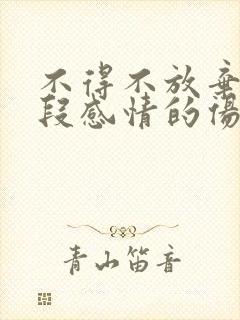 不得不放棄
段感情的傷
青山笛音